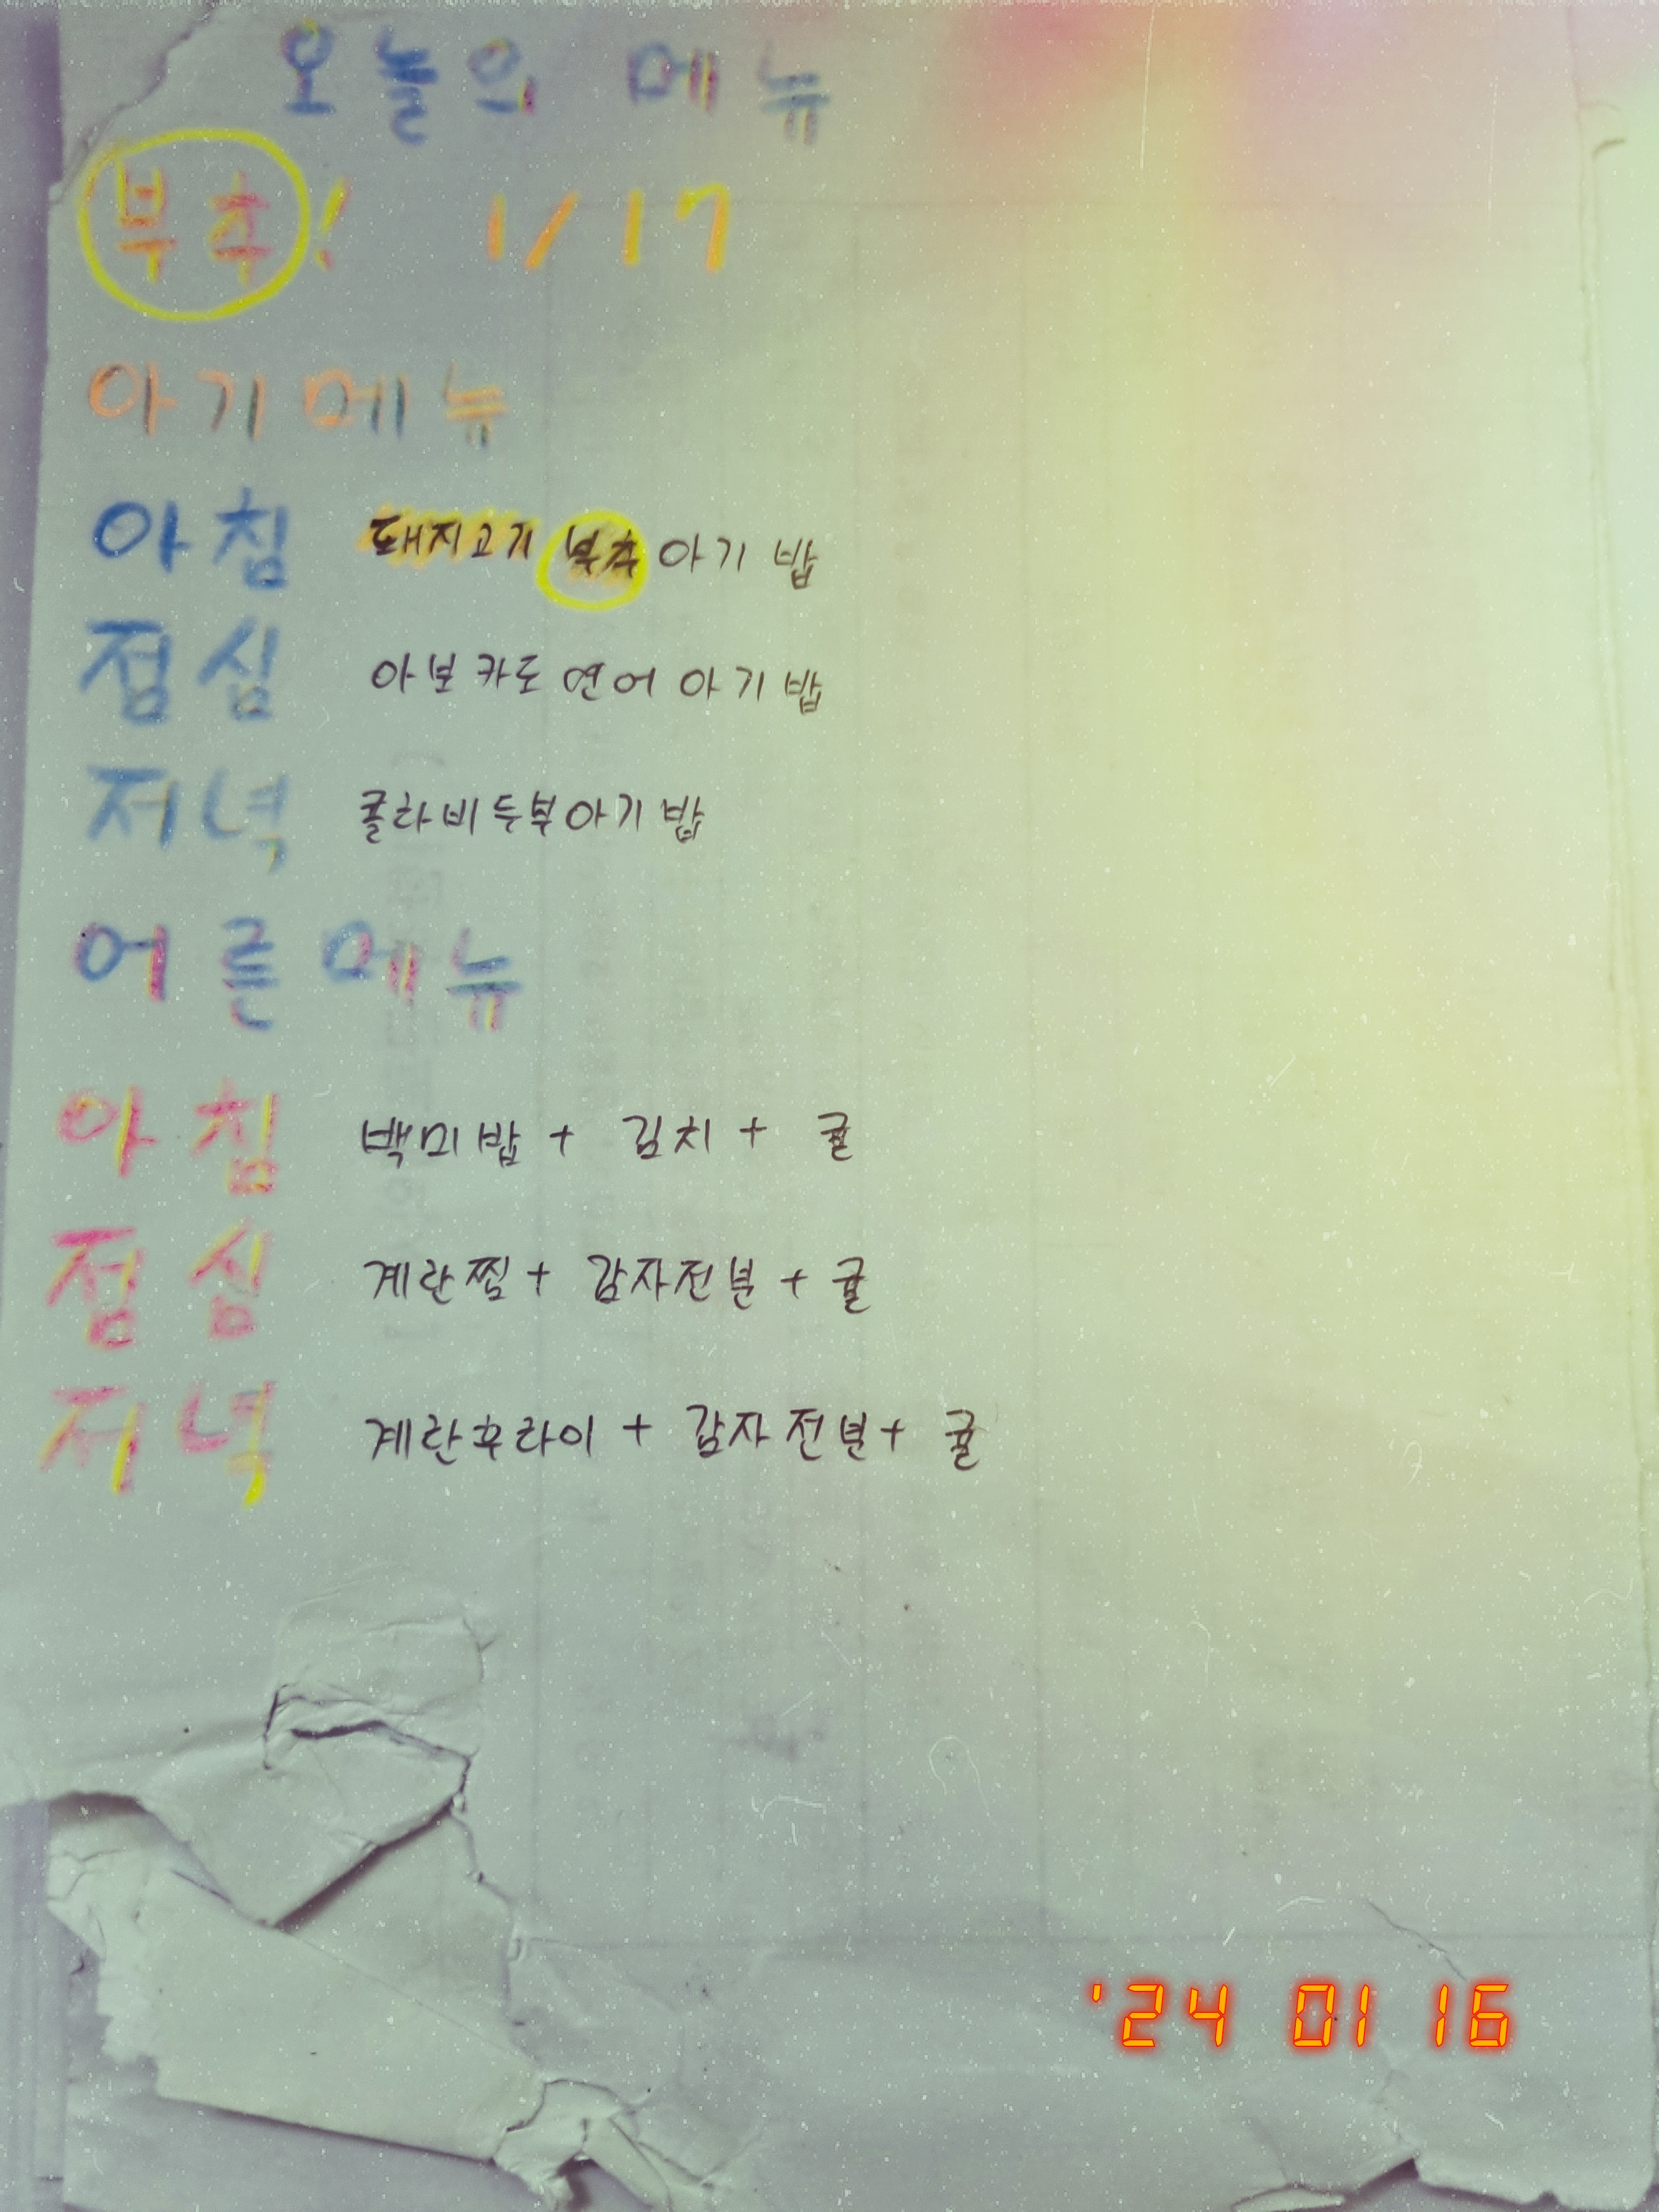 오늘의 메뉴
부추! 1/17
아기메뉴
아침 돼지고기 부추 아기 밥
점심 아보카도 연어 아기 밥
저녁 콜라비두부아기밥
어른메뉴
아침 백미밥 + 김치 + 귤
점심 계란찜 + 감자전분 + 귤
저녁 계란후라이 + 감자전분 + 귤
'24 01 16